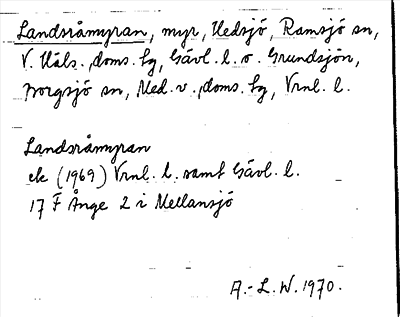 Landsråmyran, myr, Hedsjö, Ramsjö sn,
V. Häls. doms. hg, Gävl. l. o. Grundsjön,
Borgsjö sn, Med. v. doms. hg, Vrnl. l.
Landsråmyran
ek (1969) Vrnl. l. samt Gävl. l.
17 F Ånge 2 i Mellansjö
A.-L.W. 1970.